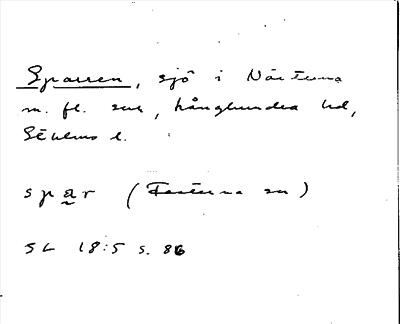 Sparren, sjö i Närtuna
m. fl. snr, Långhundra hd,
Sthlms l.
spar (Fasterna sn)
SL 18:5 s. 86